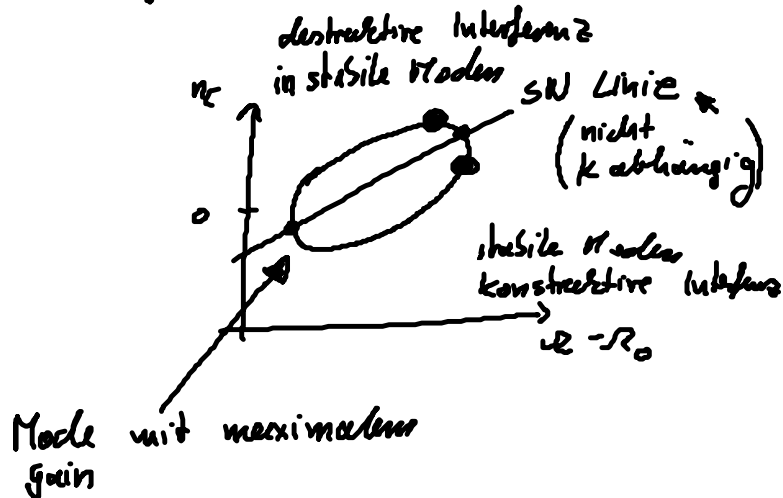 destruktive Interferenz
instabile Moden
n_c
SN Linie
(nicht
K abhängig)
0
stabile Moden
konstruktive Interferenz
Ω - Ω₀
Mode mit maximalem
gain